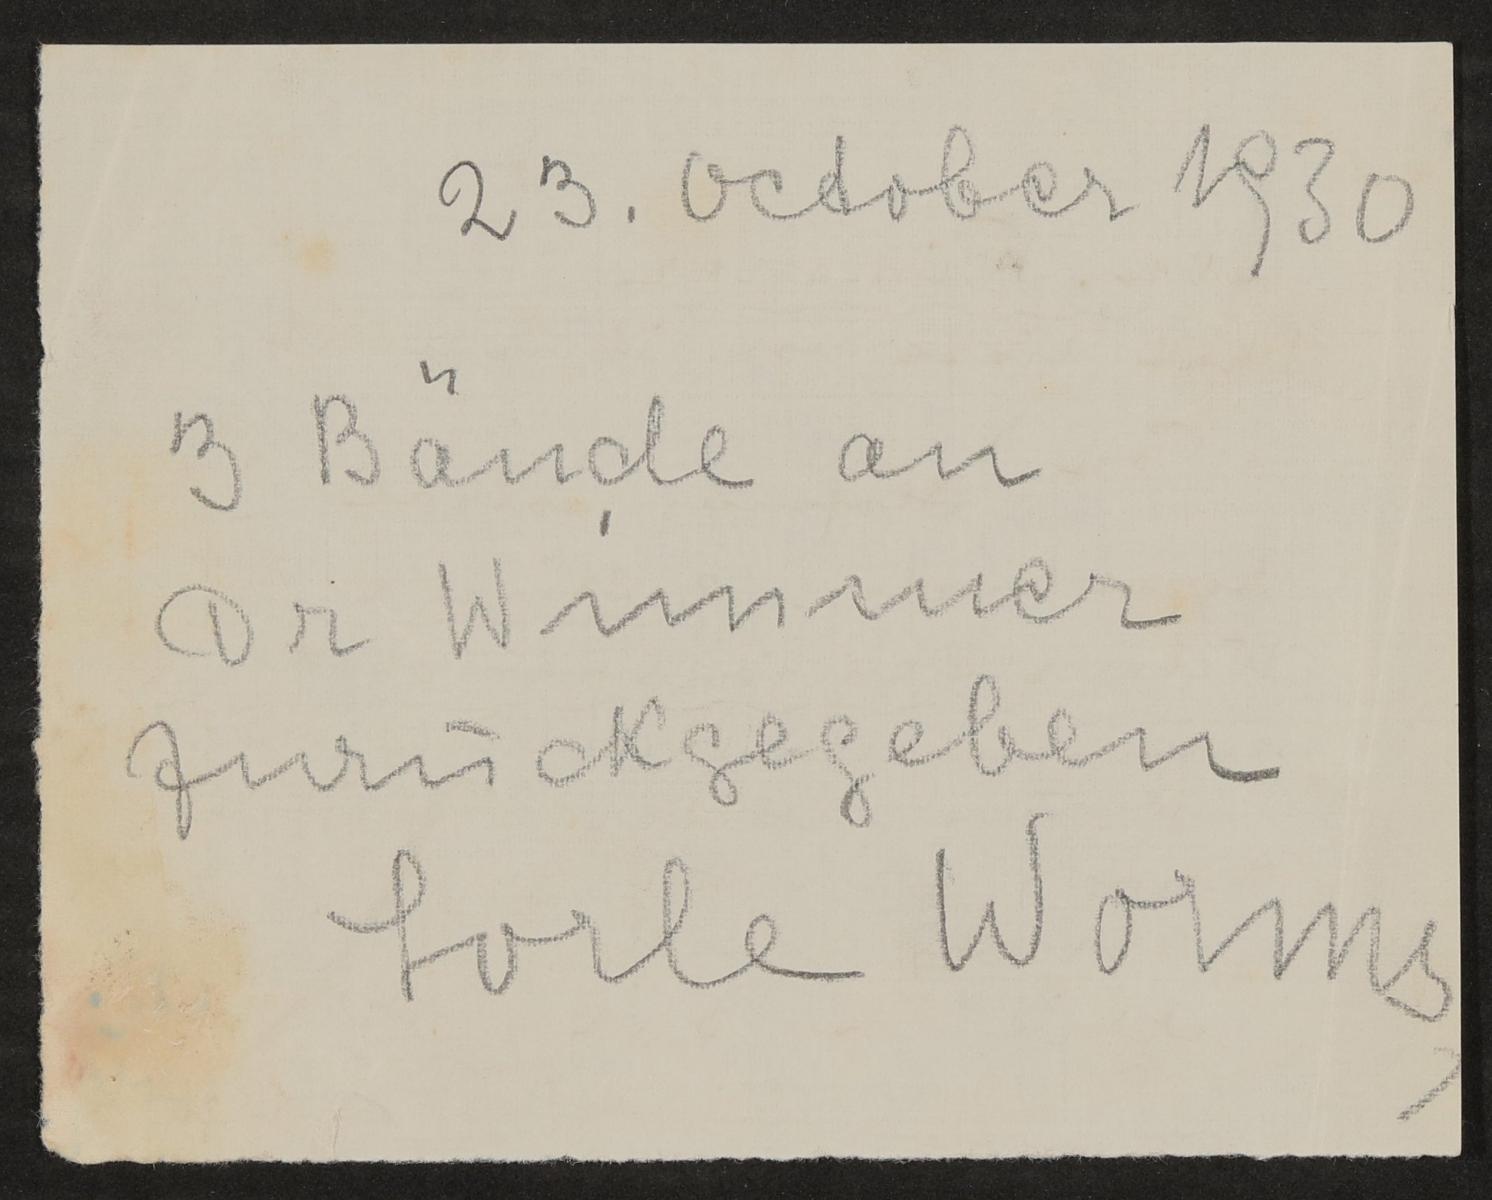 23. October 1930
3 Bände an
Dr Wimmer
zurückgegeben
Lorle Worms